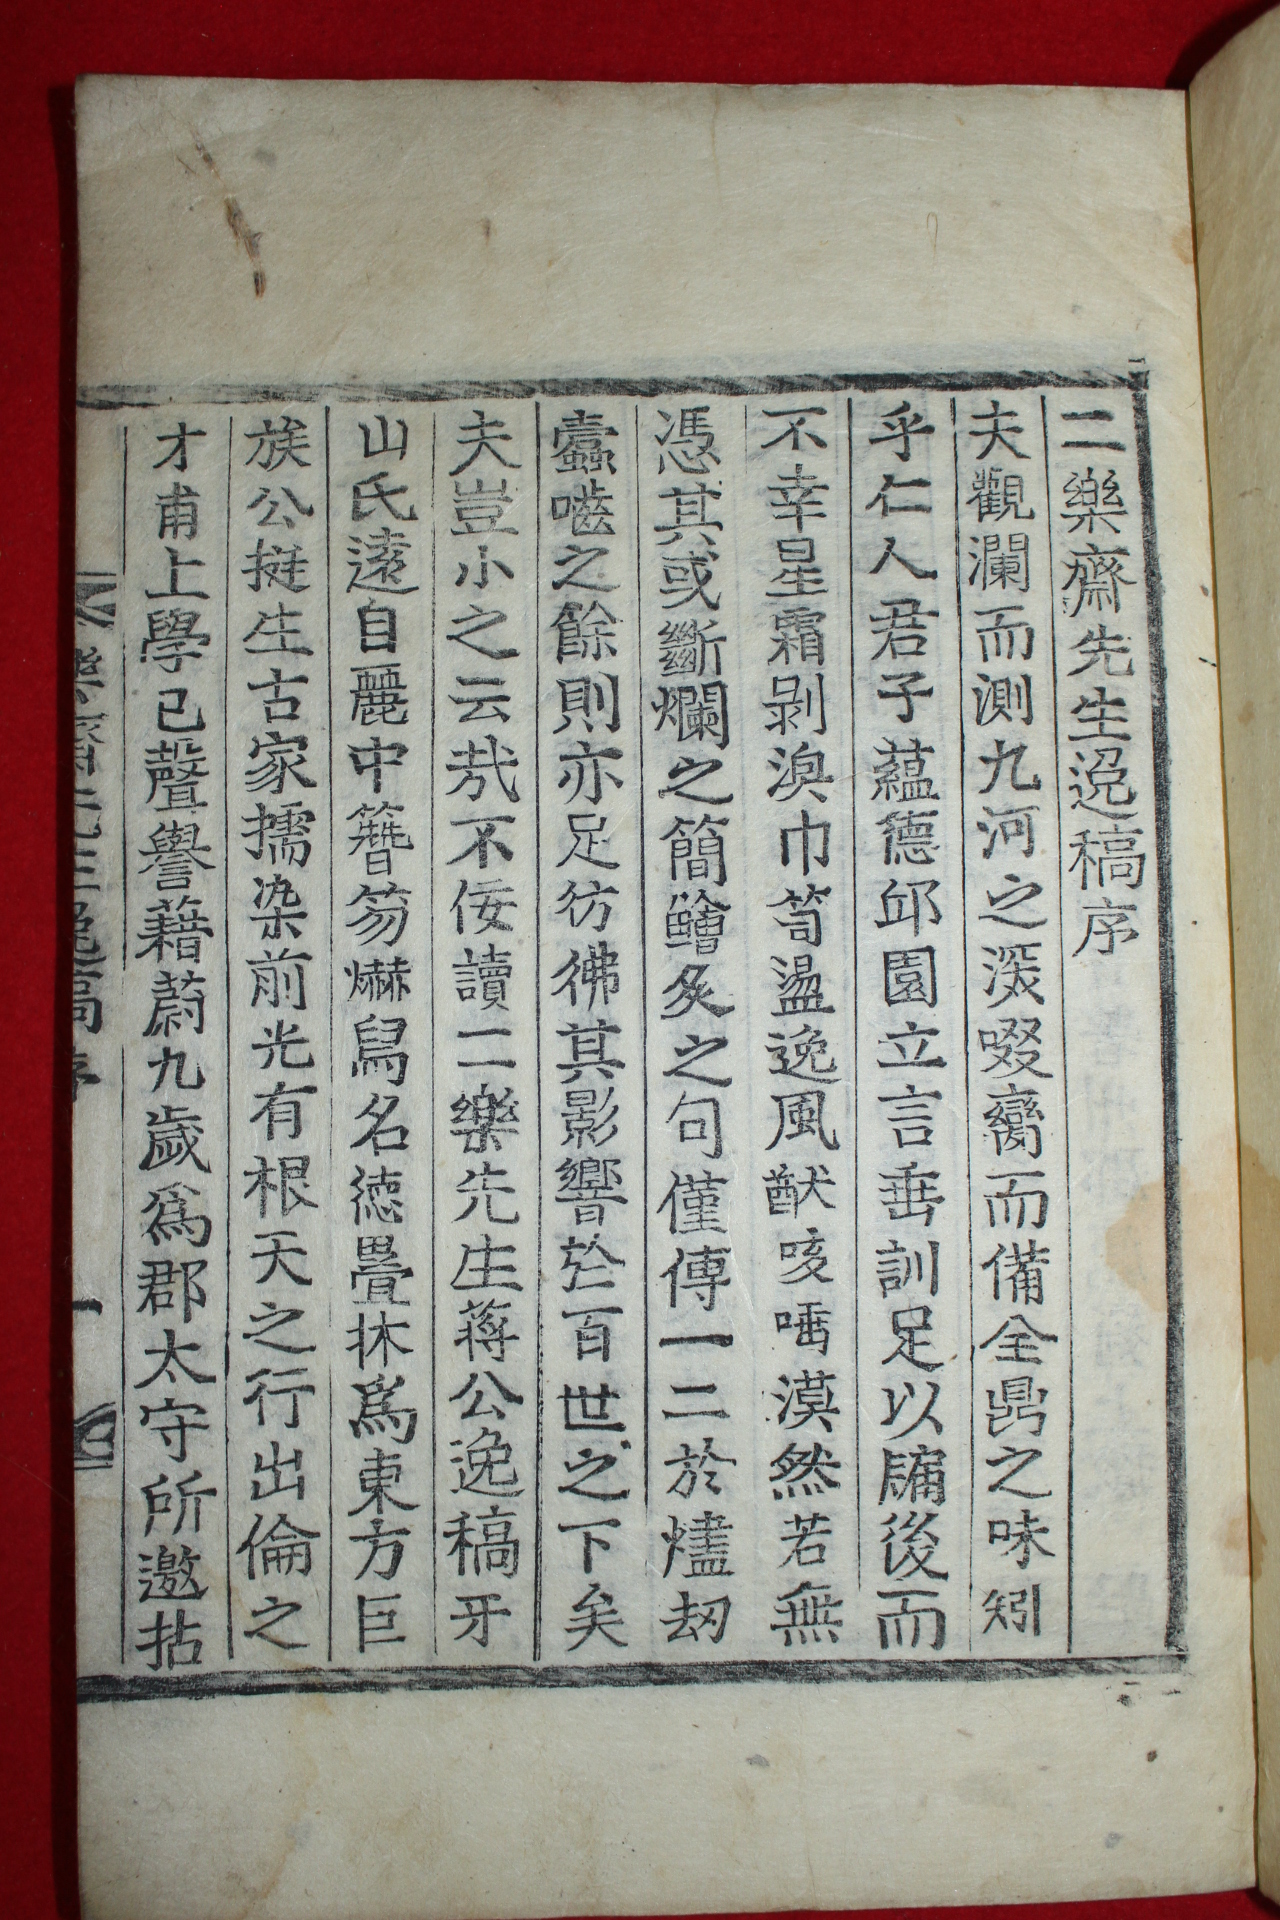 二樂齋先生逸稿序
夫觀瀾而測九河之深啜臠而備全鼎之味矧
乎仁人君子蘊德邱園立言垂訓足以牖後而
不幸星霜剝渙巾笥盪逸風猷咳唾漠然若無
憑其或斷爛之簡鱠炙之句僅傳一二於燼刧
蠹嚙之餘則亦足彷彿其影響於百世之下矣
夫豈小之云哉不佞讀二樂先生蔣公逸稿牙
山氏遠自麗中簪笏爀舄名德疊休爲東方巨
族公挺生古家擩染前光有根天之行出倫之
才甫上學已聲譽藉蔚九歲爲郡太守所邀拈
樂齋先生逸稿序
一